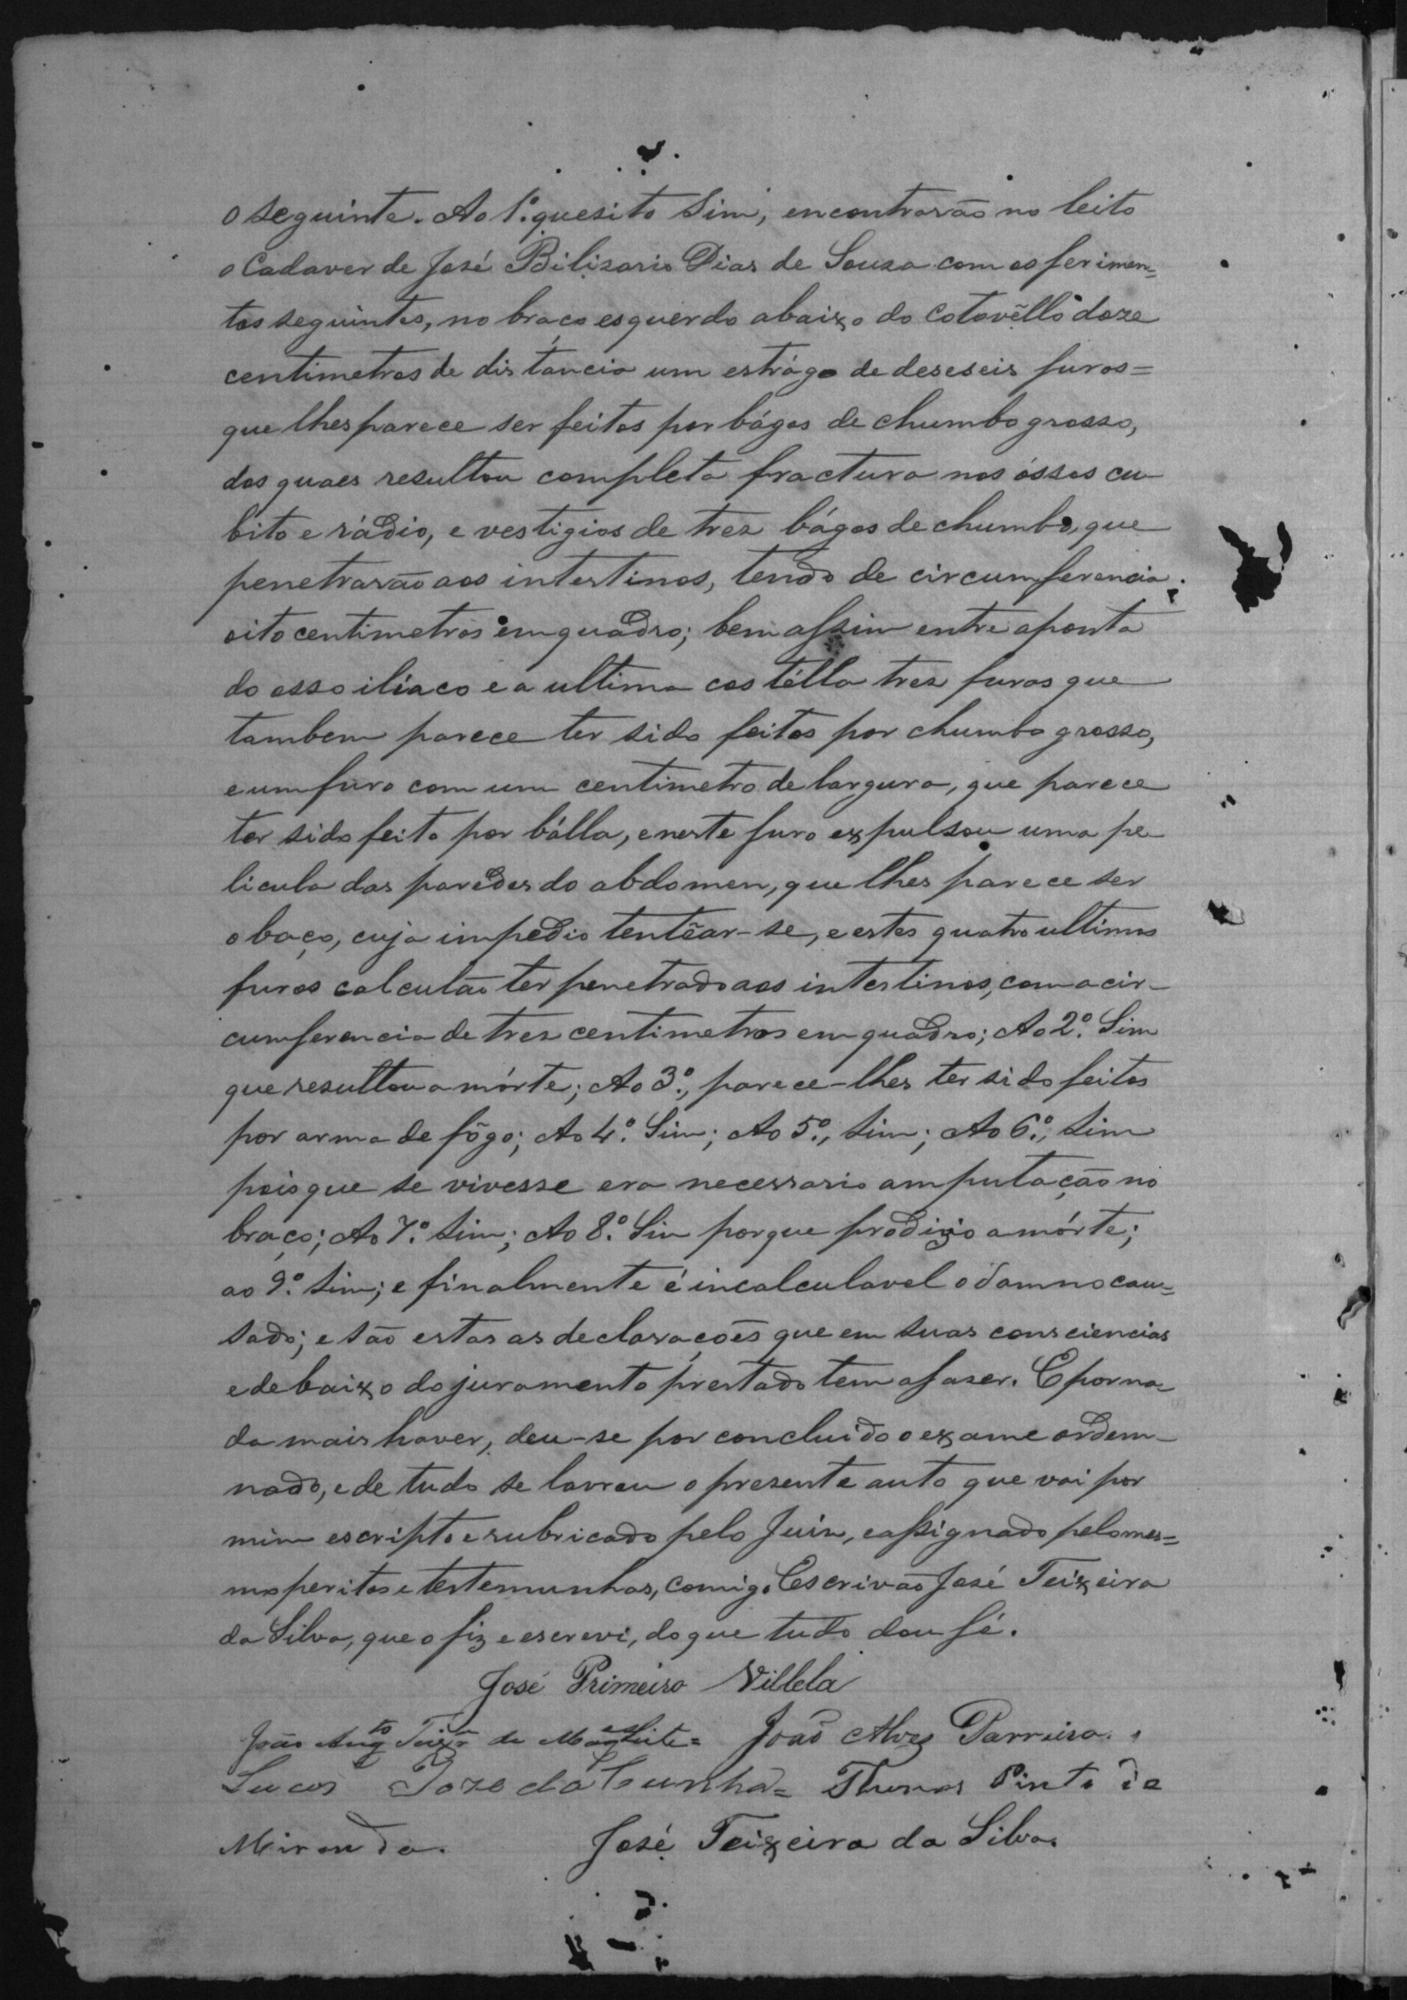 o seguinte. Ao 1º quesito Sim, encontrarão no leito
o Cadaver de José Bilizario Dias de Souza com os ferimen=
tos seguintes, no braço esquerdo abaixo do cotovêllo doze
centimetros de distáncia um estrágo de deseseis furos=
que lhes parece ser feitos por bágos de chumbo grosso,
dos quaes resultou completa fractura nos óssos cu-
bito e rádio, e vestigios de trez bágos de chumbo, que
penetrarão aos intestinos, tendo de circumferencia
oito centimetros em quadro; bem assim entre a ponta
do osso iliaco e a ultima costélla trez furos que
tambem parece ter sido feitos por chumbo grosso,
e um furo com um centimetro de largura, que parece
ter sido feito por bálla, e neste furo expulsou uma pe-
licula das paredes do abdomen, que lhes parece ser
o baço, cuja impedio tentêar-se, e estes quatro ultimos
furos calculão ter penetrado aos intestinos, com a cir-
cumferencia de trez centimetros em quadro; Ao 2º. Sim
que resultou a mórte; Ao 3º., parece-lhes ter sido feitos
por arma de fôgo; Ao 4º. Sim; Ao 5º., Sim; Ao 6º., Sim
pois que se vivesse era necessario amputação no
braço; Ao 7º. Sim; Ao 8º. Sim porque prodizio a mórte;
ao 9º. Sim; e finalmente é incalculavel o damno cau=
sado; e são estas as declarações que em suas consciencias
e debaixo do juramento prestado tem a faser. E por na-
da mais haver, deu-se por concluido o exame ordem-
nado, e de tudo se lavrou o presente auto que vai por
mim escripto e rubricado pelo Juin, e assignado pelo mes=
mo peritos e testemunhas, comigo Escrivão José Teixeira
da Silva, que o fiz e escrevi, do que tudo dou fé.
José Primeiro Villela
João Augto Teixra de = João Alves Parreira.
Lucas Joze da Cunha = Thomas Pinto de
Miranda. José Teixeira da Silva.